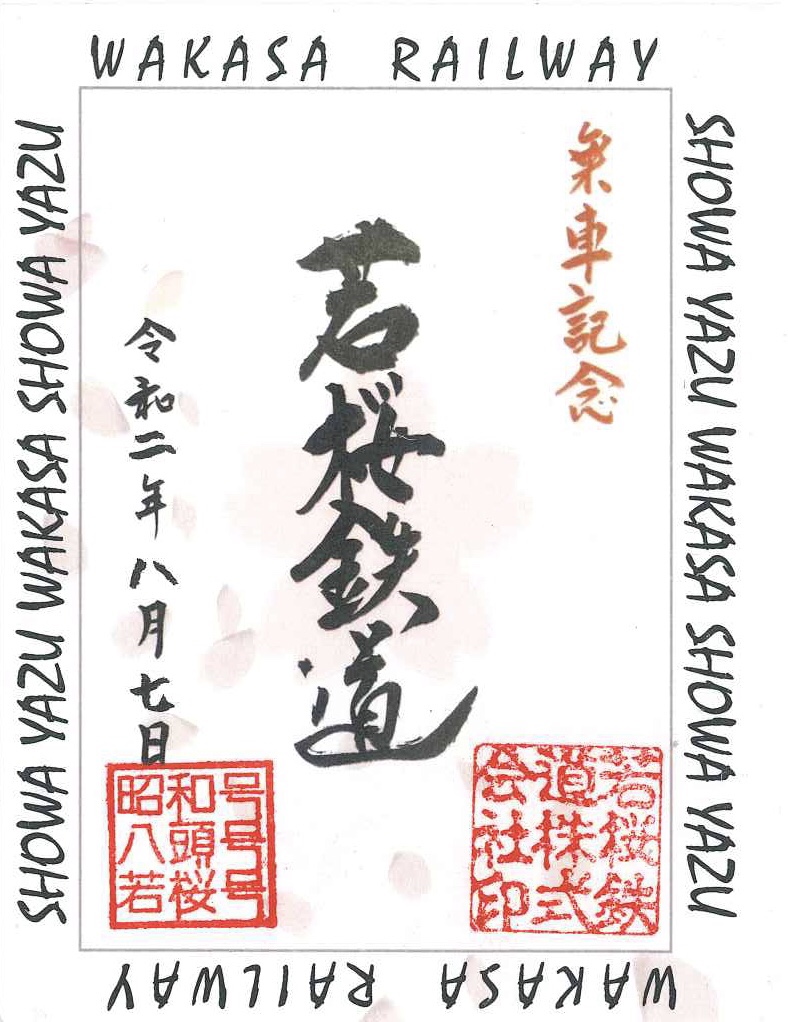 WAKASA RAILWAY
SHOWA YAZU WAKASA SHOWA YAZU
乗車記念
若桜鉄道
令和二年八月七日
若桜鉄
道株式
会社印
昭和号
八頭号
若桜号
WAKASA RAILWAY
SHOWA YAZU WAKASA SHOWA YAZU